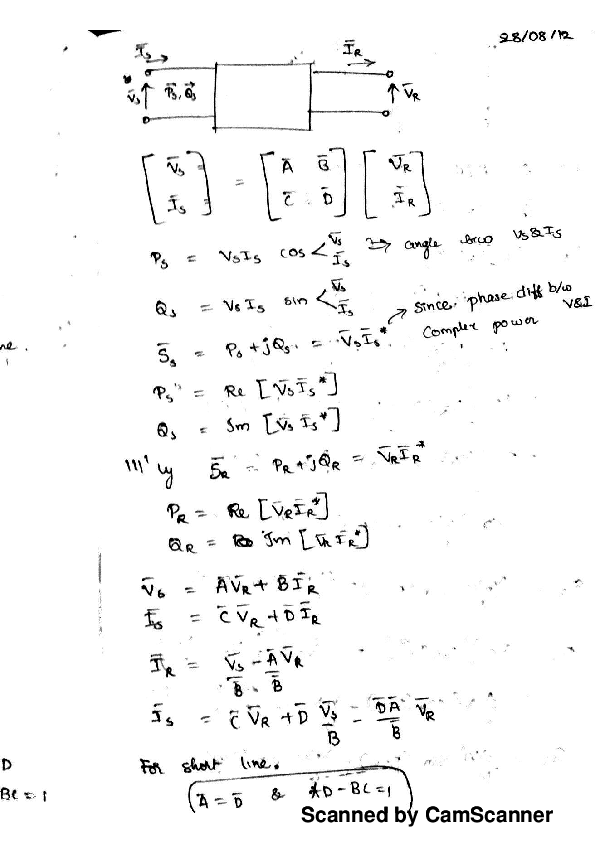 28/08/12
I̅s
I̅R
V̅s P̅s, Q̅s V̅R
[V̅s I̅s] = [A̅ B̅ C̅ D̅] [V̅R I̅R]
Ps = VsIs cos < V̅s I̅s → angle b/w Vs & Is
Qs = VsIs sin < V̅s I̅s
since phase diff b/w V&I
S̅s = Ps + jQs = V̅sI̅s* complex power
Ps = Re [V̅sI̅s*]
Qs = Im [V̅s I̅s*]
|||'ly S̅R = PR + jQR = V̅RI̅R*
PR = Re [V̅RI̅R*]
QR = Im [V̅R I̅R*]
V̅s = A̅V̅R + B̅I̅R
I̅s = C̅V̅R + D̅I̅R
I̅R = V̅s/B̅ - A̅V̅R/B̅
I̅s = C̅V̅R + D̅ V̅s/B̅ - D̅A̅/B̅ V̅R
For short line.
A̅ = D̅ & AD-BC=1
ne.
D
BC = 1
Scanned by CamScanner